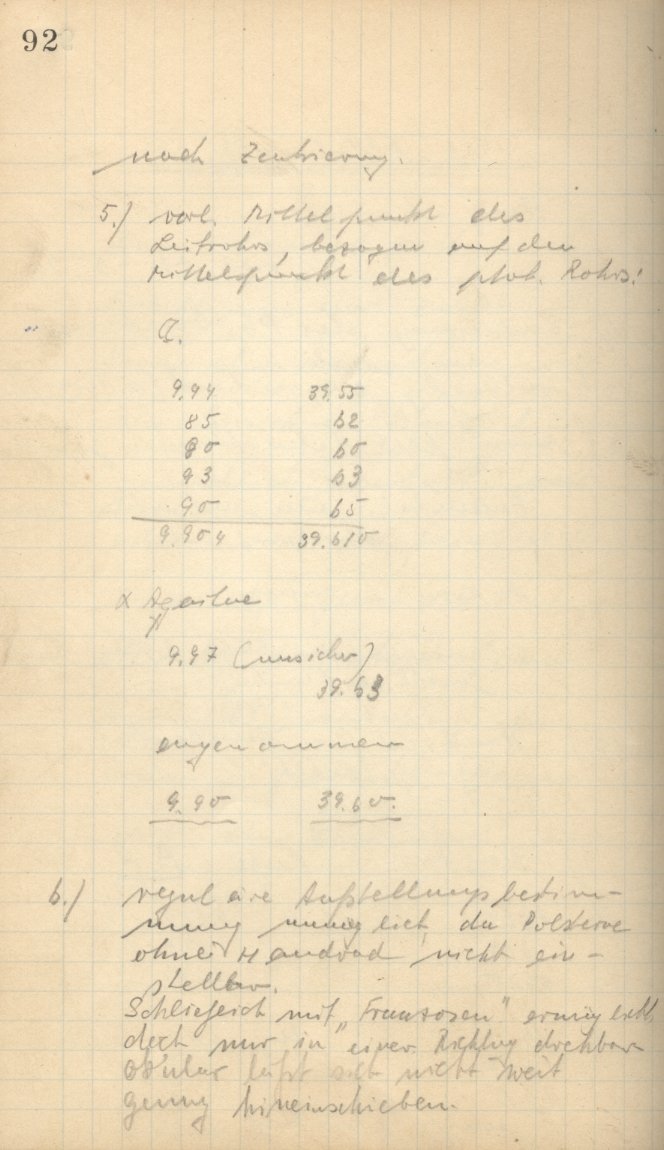 92
nach Zentrierung.
5.) vorl. Mittelpunkt des
Leitrohrs, bezogen auf den
Mittelpunkt des phot. Rohrs:
9.94 39.55
85 62
90 60
93 63
90 65
9.904 39.610
α Aquilae
9.97 (unsicher)
39.63
angenommen
9.90 39.60.
6.) reguläre Aufstellungsbestim-
mung unmöglich, da Polsterne
ohne Handrad nicht ein-
stellbar.
Schliesslich mit "Franzosen" ermöglicht,
doch nur in einer Richtung drehbar.
Okular läßt sich nicht weit
genug hineinschieben.